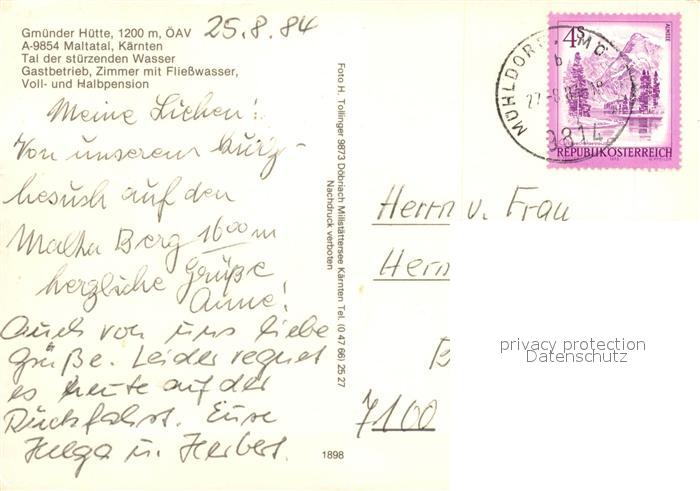 Gmünder Hütte, 1200 m, ÖAV
A-9854 Maltatal, Kärnten
Tal der stürzenden Wasser
Gastbetrieb, Zimmer mit Fließwasser,
Voll- und Halbpension
25.8.84
Meine Lieben!
Von unserem Kurz-
besuch auf den
Malta Berg 1600 m
herzliche Grüße
Anne!
Auch von uns liebe
Grüße. Leider regnet
es heute auf der
Rückfahrt. Eure
Helga u. Herbert.
1898
Foto H. Tollinger 9873 Döbriach Millstättersee Kärnten Tel. (0 47 66) 25 27
Nachdruck verboten
MÜHLDORF
9814
4S
ALMSEE
REPUBLIK ÖSTERREICH
Herrn u. Frau
Herm
7100
privacy protection
Datenschutz